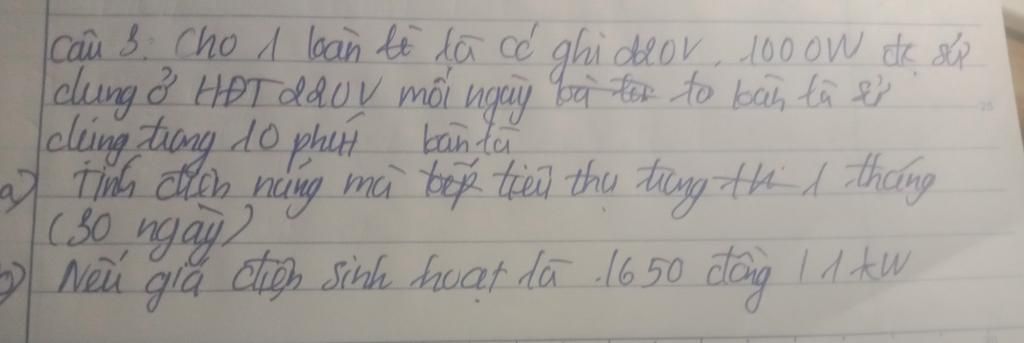 Câu 3: Cho 1 bàn là có ghi 220V. 1000W đc sử
dụng ở HĐT 220V mỗi ngày ta bàn là sử
dụng trong 10 phút bàn là
a) Tính điện năng mà bếp tiêu thụ trong 1 tháng
(30 ngày)
b) Nếu giá điện sinh hoạt là 1650 đồng / 1 kW